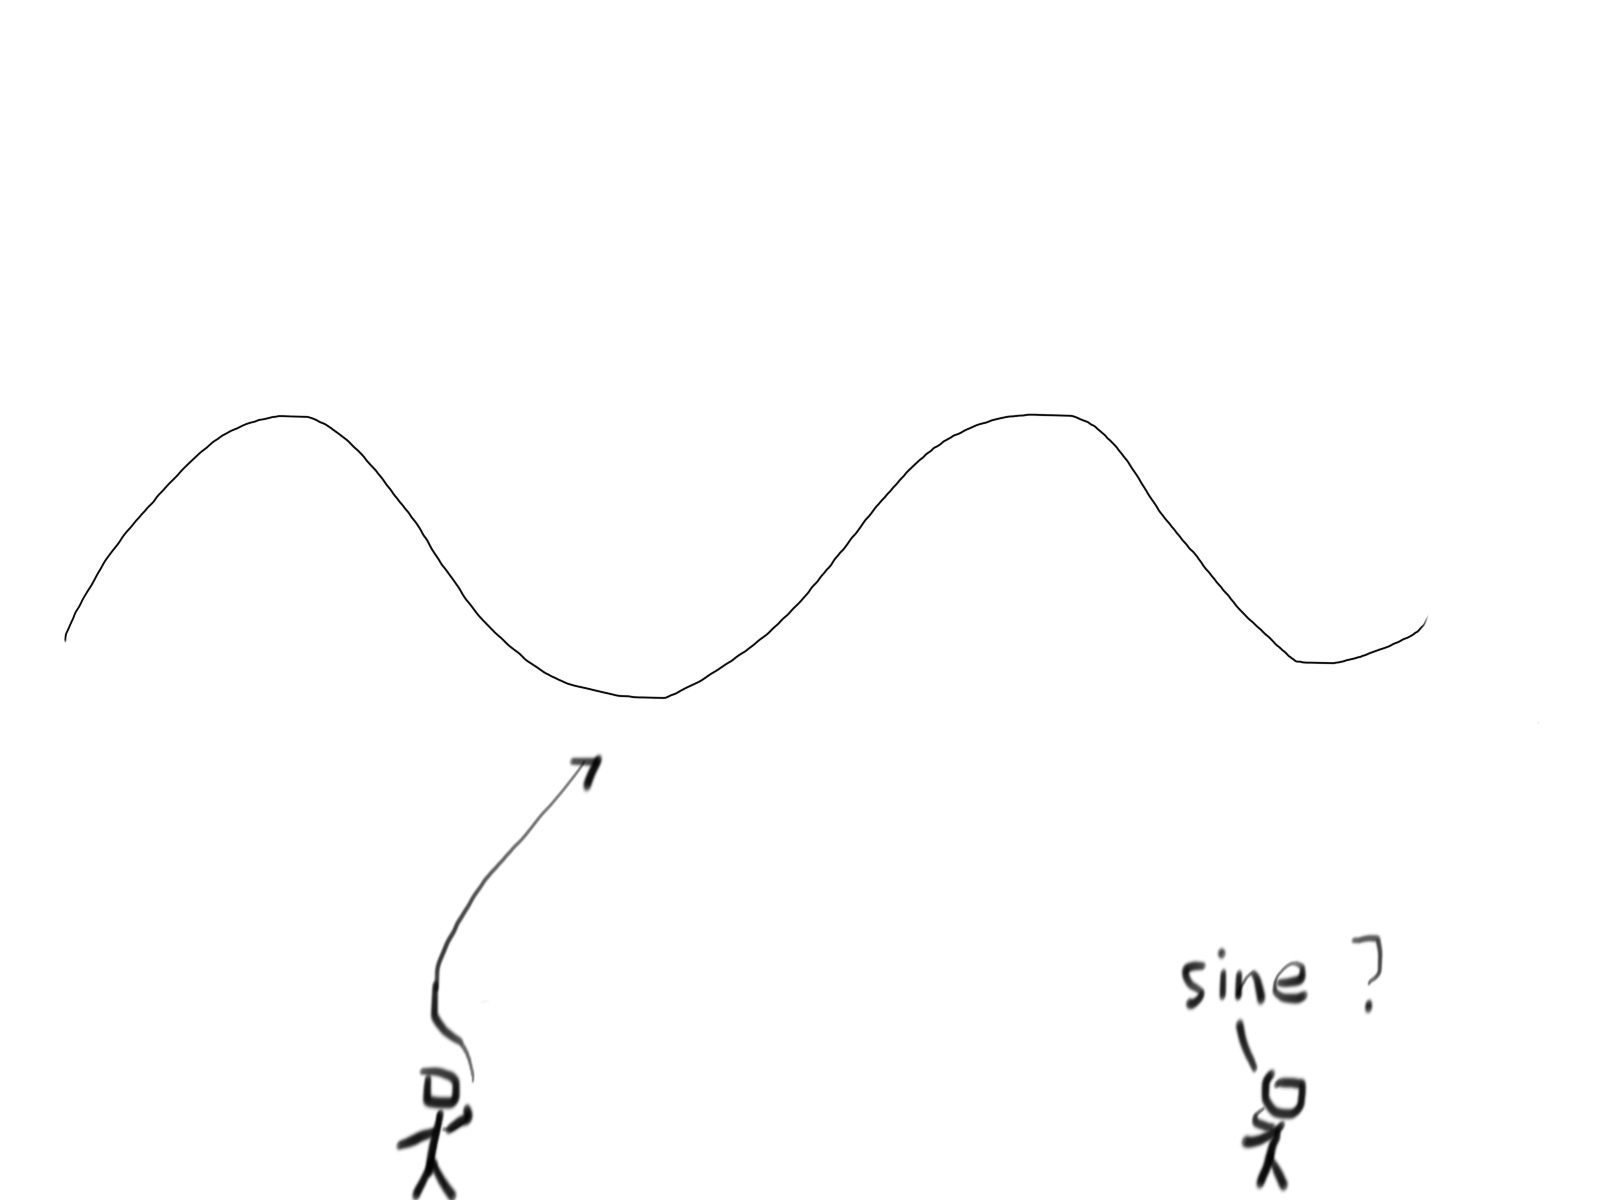 sine ?